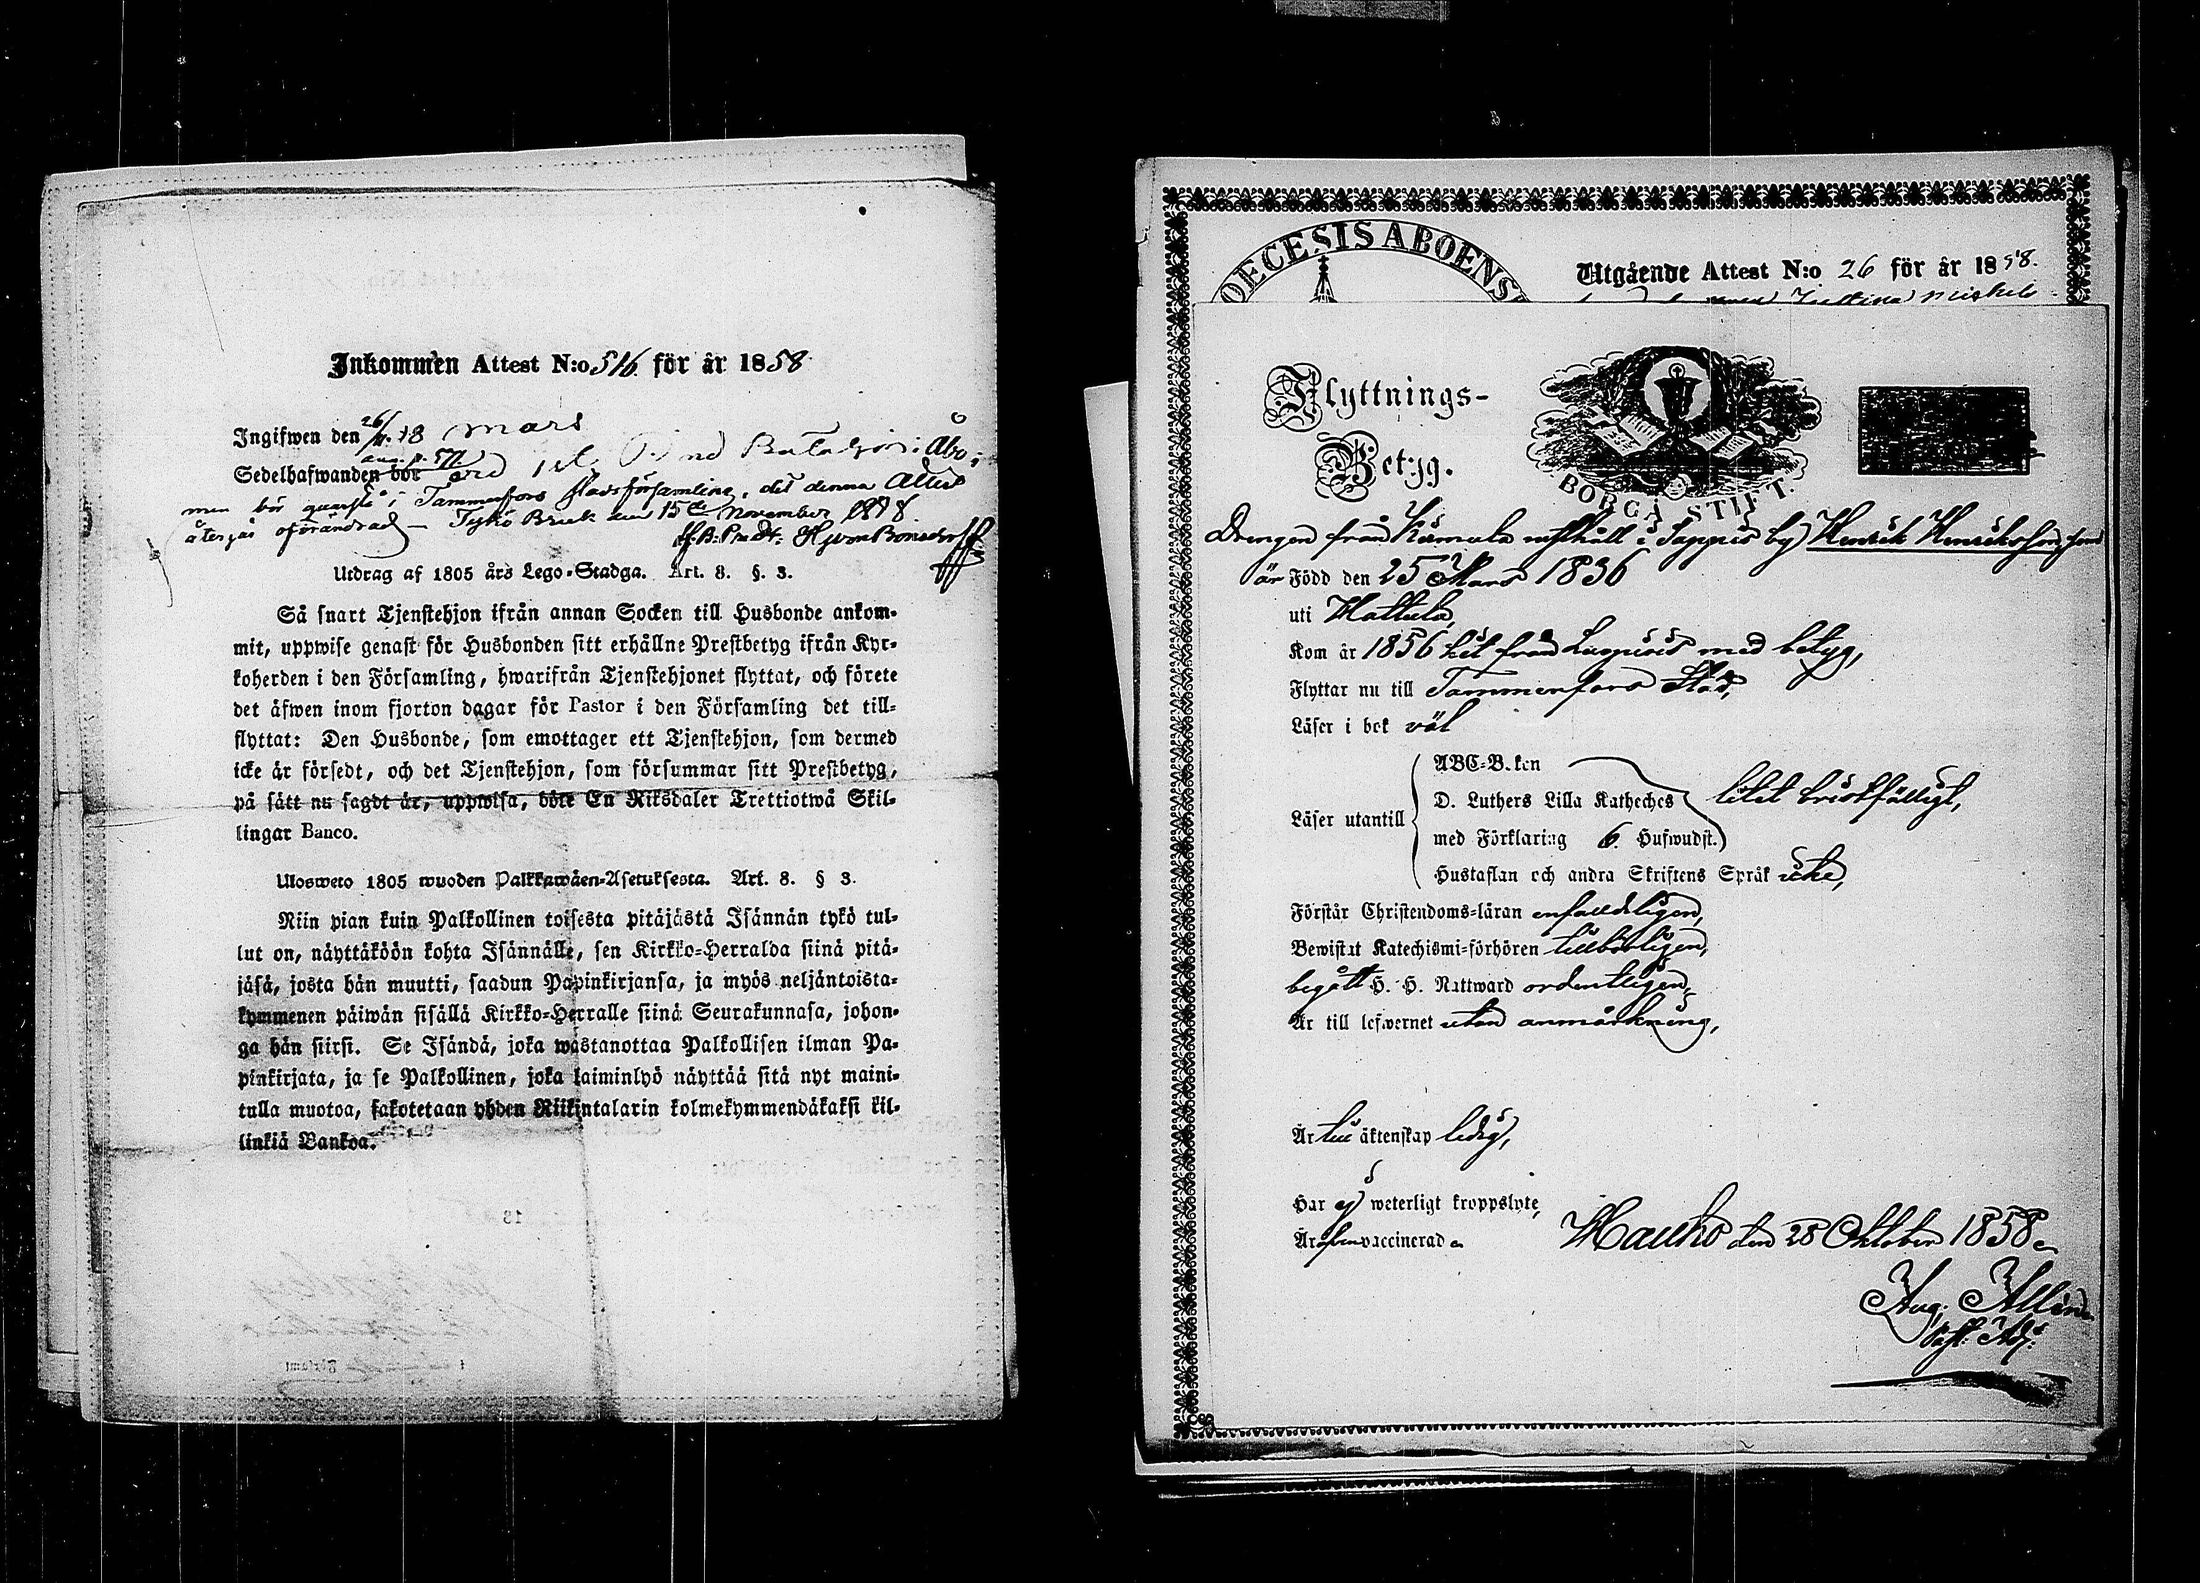 Inkommen Attest N:o 516 för år 1858
Ingifwen den 18 mars
Sedelhafwanden bör Åbo,
men bör quarstå i Tammerfors stadsförsamling, det denna Attest
återgår oförändrad — Tykö Bruk den 15de November 1878.
Utdrag af 1805 års Lego-Stadga. Art. 8. §. 3.
Så snart Tjenstehjon ifrån annan Socken till Husbonde ankom-
mit, uppwise genast för Husbonden sitt erhållne Prestbetyg ifrån Kyr-
koherden i den Församling, hwarifrån Tjenstehjonet flyttat, och förete
det äfwen inom fjorton dagar för Pastor i den Församling det till-
flyttat: Den Husbonde, som emottager ett Tjenstehjon, som dermed
icke är försedt, och det Tjenstehjon, som försummar sitt Prestbetyg,
på sätt nu sagdt är, uppwisa, böte En Riksdaler Trettiotwå Skil-
lingar Banco.
Ulosweto 1805 wuoden Palkkawäen-Asetuksesta. Art. 8. § 3.
Niin pian kuin Palkollinen toisesta pitäjästä Isännän tykö tul-
lut on, näyttäköön kohta Isännälle, sen Kirkko-Herralda siinä pitä-
jäsä, josta hän muutti, saadun Papinkirjansa, ja myös neljäntoista-
kymmenen päiwän sisällä Kirkko-Herralle siinä Seurakunnasa, johon-
ga hän siirsi. Se Isändä, joka wastanottaa Palkollisen ilman Pa-
pinkirjata, ja se Palkollinen, joka laiminlyö näyttää sitä nyt maini-
tulla muotoa, sakotetaan yhden Riikintalarin kolmekymmendäkaksi kil-
linkiä Bankoa.
DIOECESIS ABOENS
Utgående Attest N:o 26 för år 1858.
Flyttnings-
Betyg.
BORGÅ STIFT.
Drengen från Kümula rusthåll i Sappis by Henrik Henriksson, som
är Född den 25 Mars 1836
uti Hattula,
Kom år 1856 hit från med betyg,
Flyttar nu till Tammerfors Stad,
Läser i bok väl
Läser utantill
ABC-Boken
D. Luthers Lilla Katheches
med Förklaring 6. Hufwudst.
litet bristfälligt,
Hustaflan och andra Skriftens Språk icke,
Förstår Christendoms-läran enfaldeligen,
Bewistat Katechismi-förhören tillbörligen,
begått H. H. Nattward ordentligen,
Är till lefwernet utan anmärkning,
Är till äktenskap ledig,
Har ej weterligt kroppslyte,
Är även vaccinerad
Hauho den 28 Oktober 1858
Aug. Allén
Past. Adj.